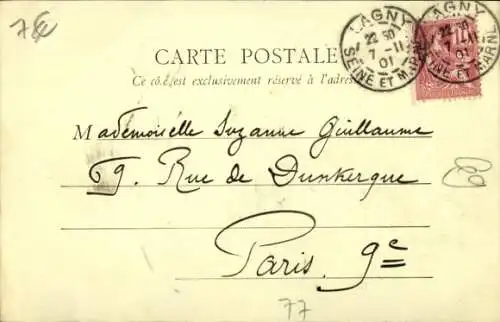 7€
CARTE POSTALE
Ce côté est exclusivement réservé à l'adresse
LAGNY
22 50
7 -11
01
SEINE ET MARNE
LAGNY
50
7
01
SEINE ET MARNE
Mademoiselle Suzanne Guillaume
69. Rue de Dunkerque
Paris 9e
77